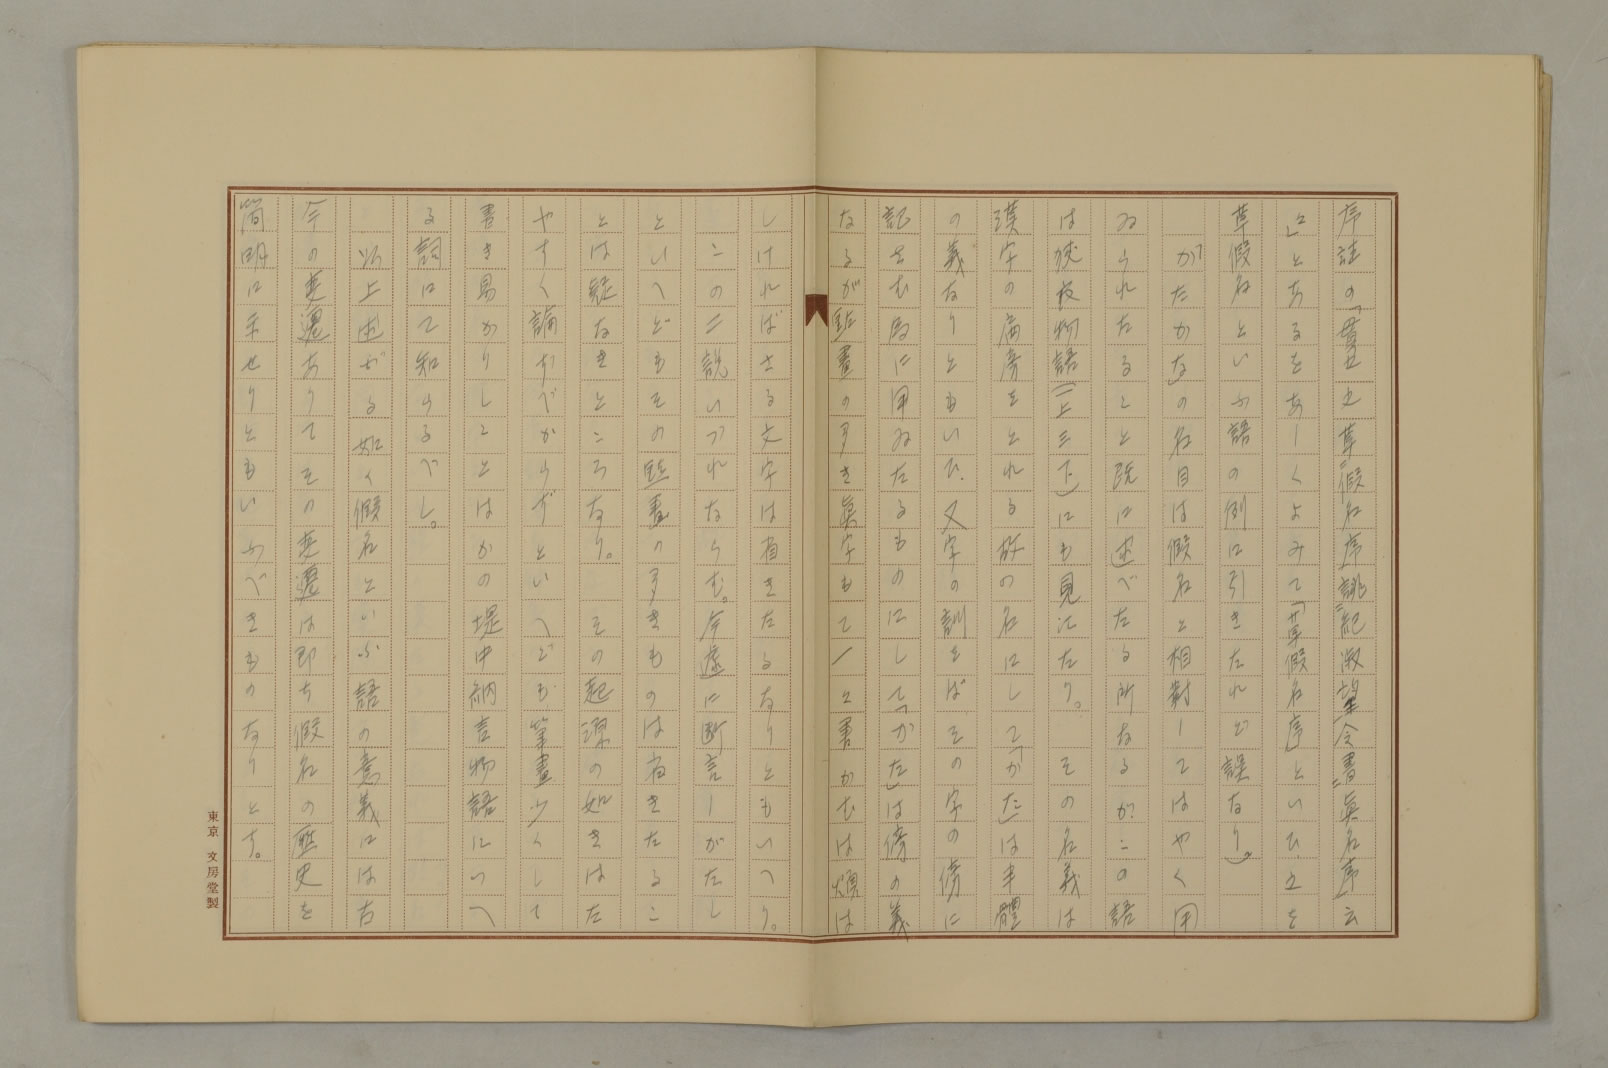 序註の「貫之也草假名序誂紀淑望令書眞名序云
々」とあるをあしくよみて「草假名序」といひ、之を
草假名といふ語の例に引きたれど誤なり)。
「かたかな」の名目は假名と相對してはやく用
ゐられたること既に述べたる所なるが、この語
は狹衣物語(上三下)にも見江たり。その名義は
漢字の扁旁をとれる故の名にして「かた」は半體
の義なりともいひ、又字の訓をばその字の傍に
記さむ爲に用ゐたるものにして「かた」は傍の義
なるが點畫の多き眞字もて一々書かむは煩は
しければさる文字は省きたるなりともいへり。
この二説いづれならむ。今遽に斷言しがたし
といへどもその點畫の多きものは省きたるこ
とは疑なきところなり。その起源の如きはた
やすく論ずべからずといへども筆畫少くして
書き易かりしことはかの堤中納言物語にいへ
る詞にて知らるべし。
以上述ぶる如く假名といふ語の意義には古
今の變遷ありてその變遷は即ち假名の歴史を
簡明に示せりともいふべきものなりとす。
東京 文房堂製